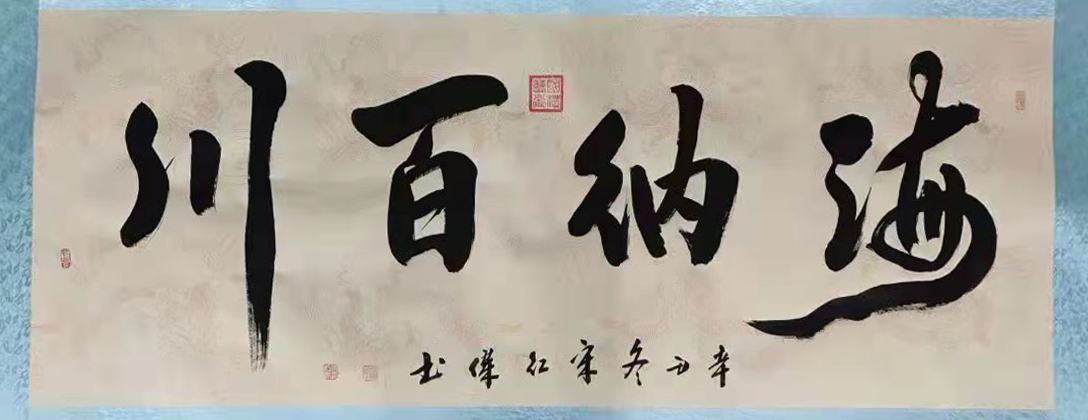 海纳百川
辛丑冬宋红伟书